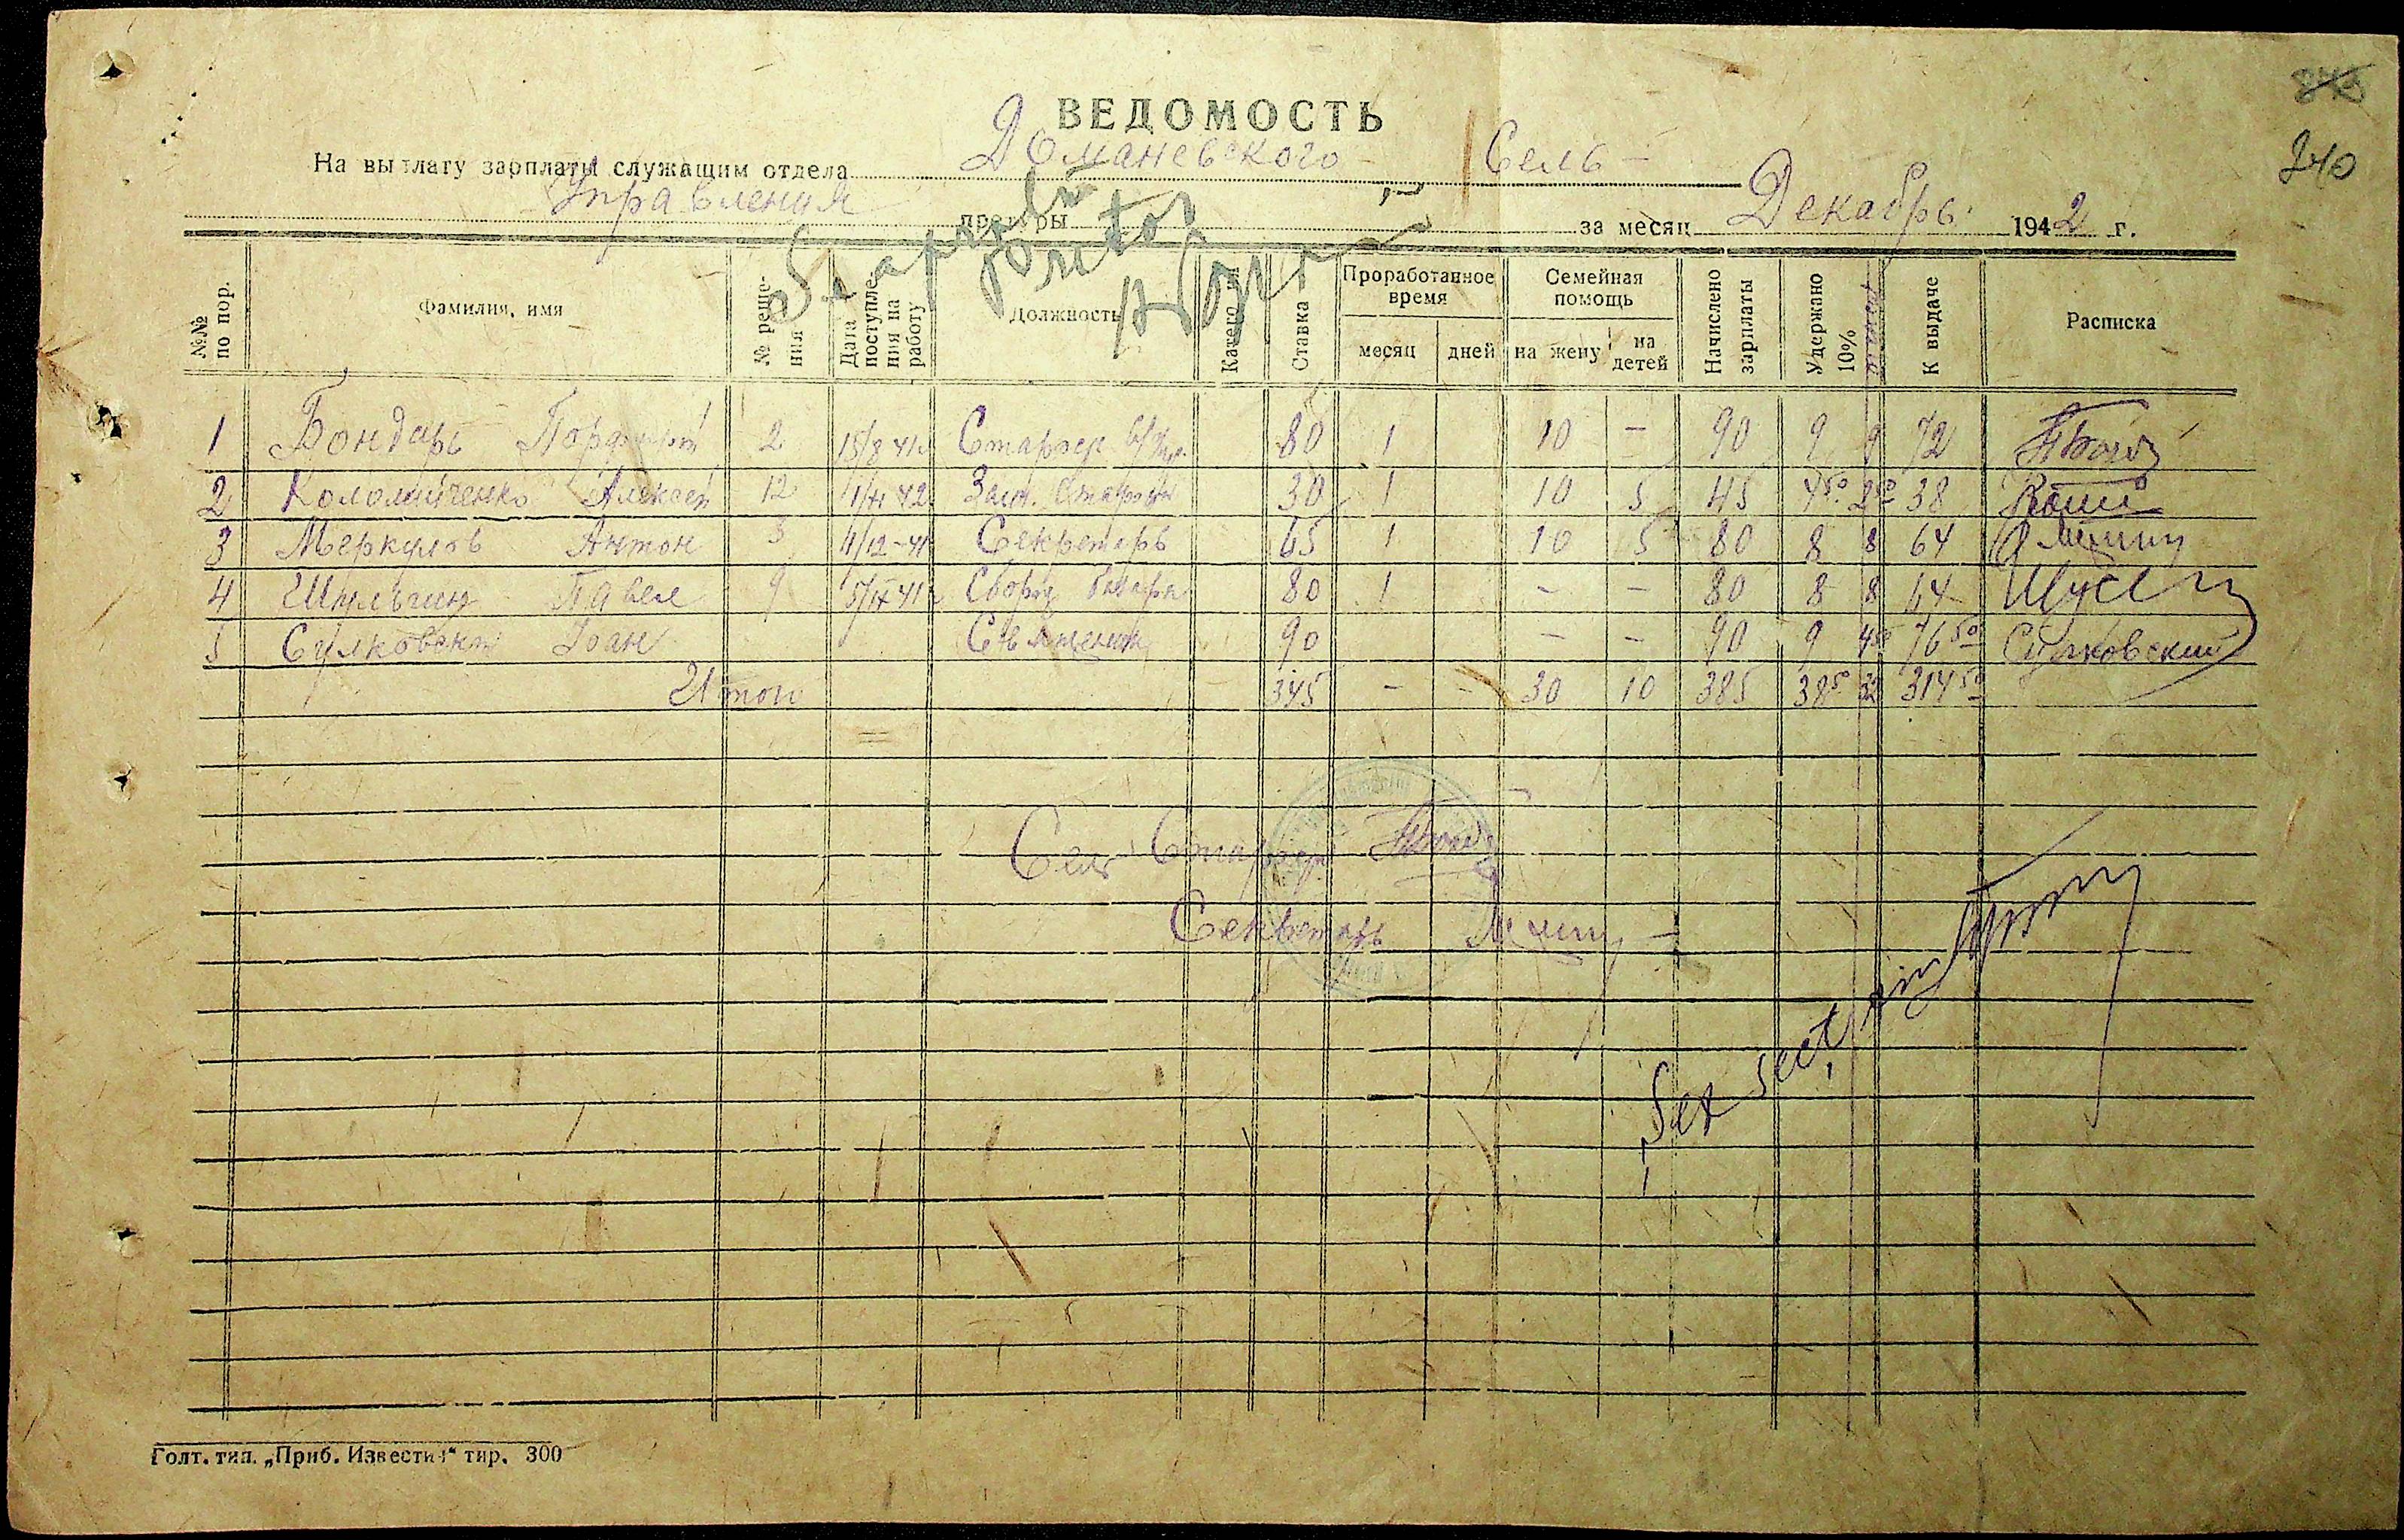 240
ВЕДОМОСТЬ
На выплату зарплаты служащим отдела Доманевского Сель-
Управления претуры за месяц Декабрь 1942 г.
№№ по пор. Фамилия, имя № решения Дата поступления на работу Должность Категория Ставка Проработанное время месяц дней Семейная помощь на жену на детей Начислено зарплаты Удержано 10% К выдаче Расписка
1 Бондарь Порфирий 2 15/8 41 Староста 80 1 10 — 90 9 9 72
2 Коломийченко Алексей 12 1/4 42 Зам. Старосты 30 1 10 5 45 4 50 2 50 38
3 Меркулов Антон 3 4/12-41 Секретарь 65 1 10 5 80 8 8 64
4 Шульгин Павел 9 80 1 — — 80 8 8 64
5 Сулковский Иоан Священник 90 — — 90 9 4 50 76 50 Сулковский
Итого 345 — — 30 10 385 38 5 32 314 50
Сель Староста
Секретарь
Șef secț.
Голт. тип. „Приб. Известия" тир. 300